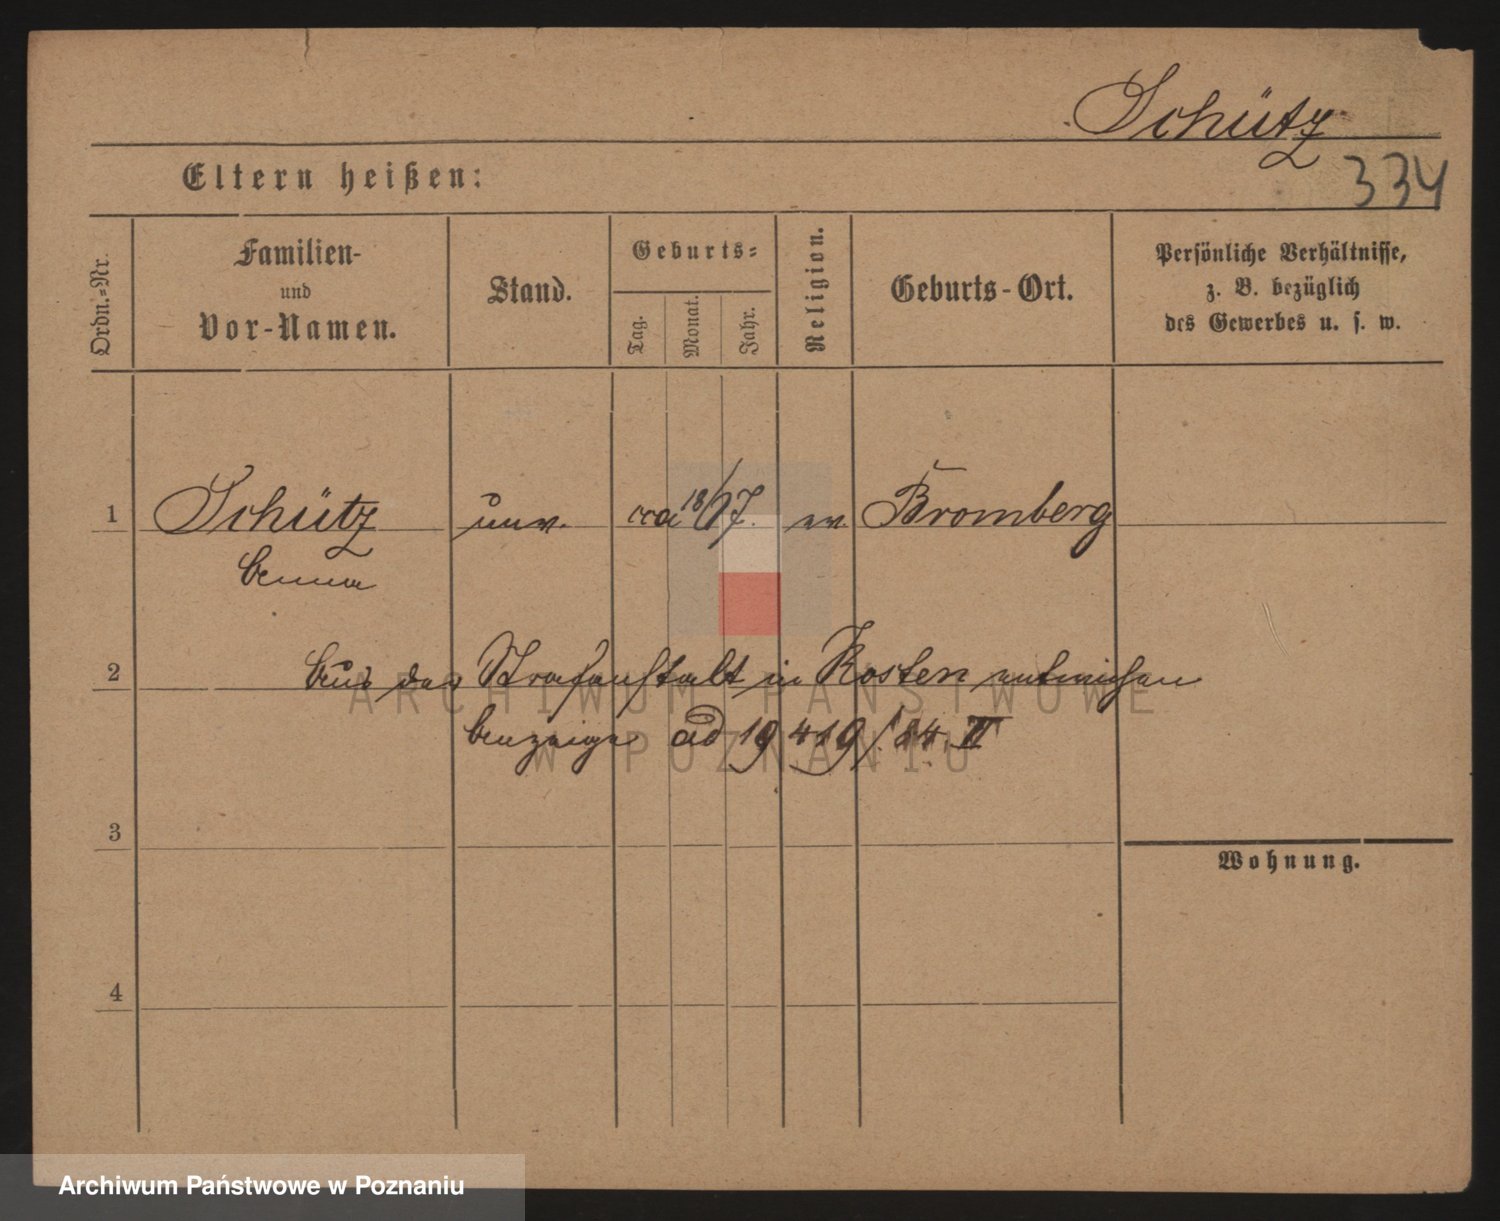 Schütz
334
Eltern heißen:
Ordn.-Nr.
Familien-
und
Vor-Namen.
Stand.
Geburts-
Tag.
Monat.
Jahr.
Religion.
Geburts-Ort.
Persönliche Verhältnisse,
z. B. bezüglich
des Gewerbes u. s. w.
1 Schütz unv. cca 18/67. ev Bromberg
Anna
2 Aus der Strafanstalt in Kosten entwichen
Anzeige ad 19419/84 II
ARCHIWUM PAŃSTWOWE
W POZNANIU
3
Wohnung.
4
Archiwum Państwowe w Poznaniu